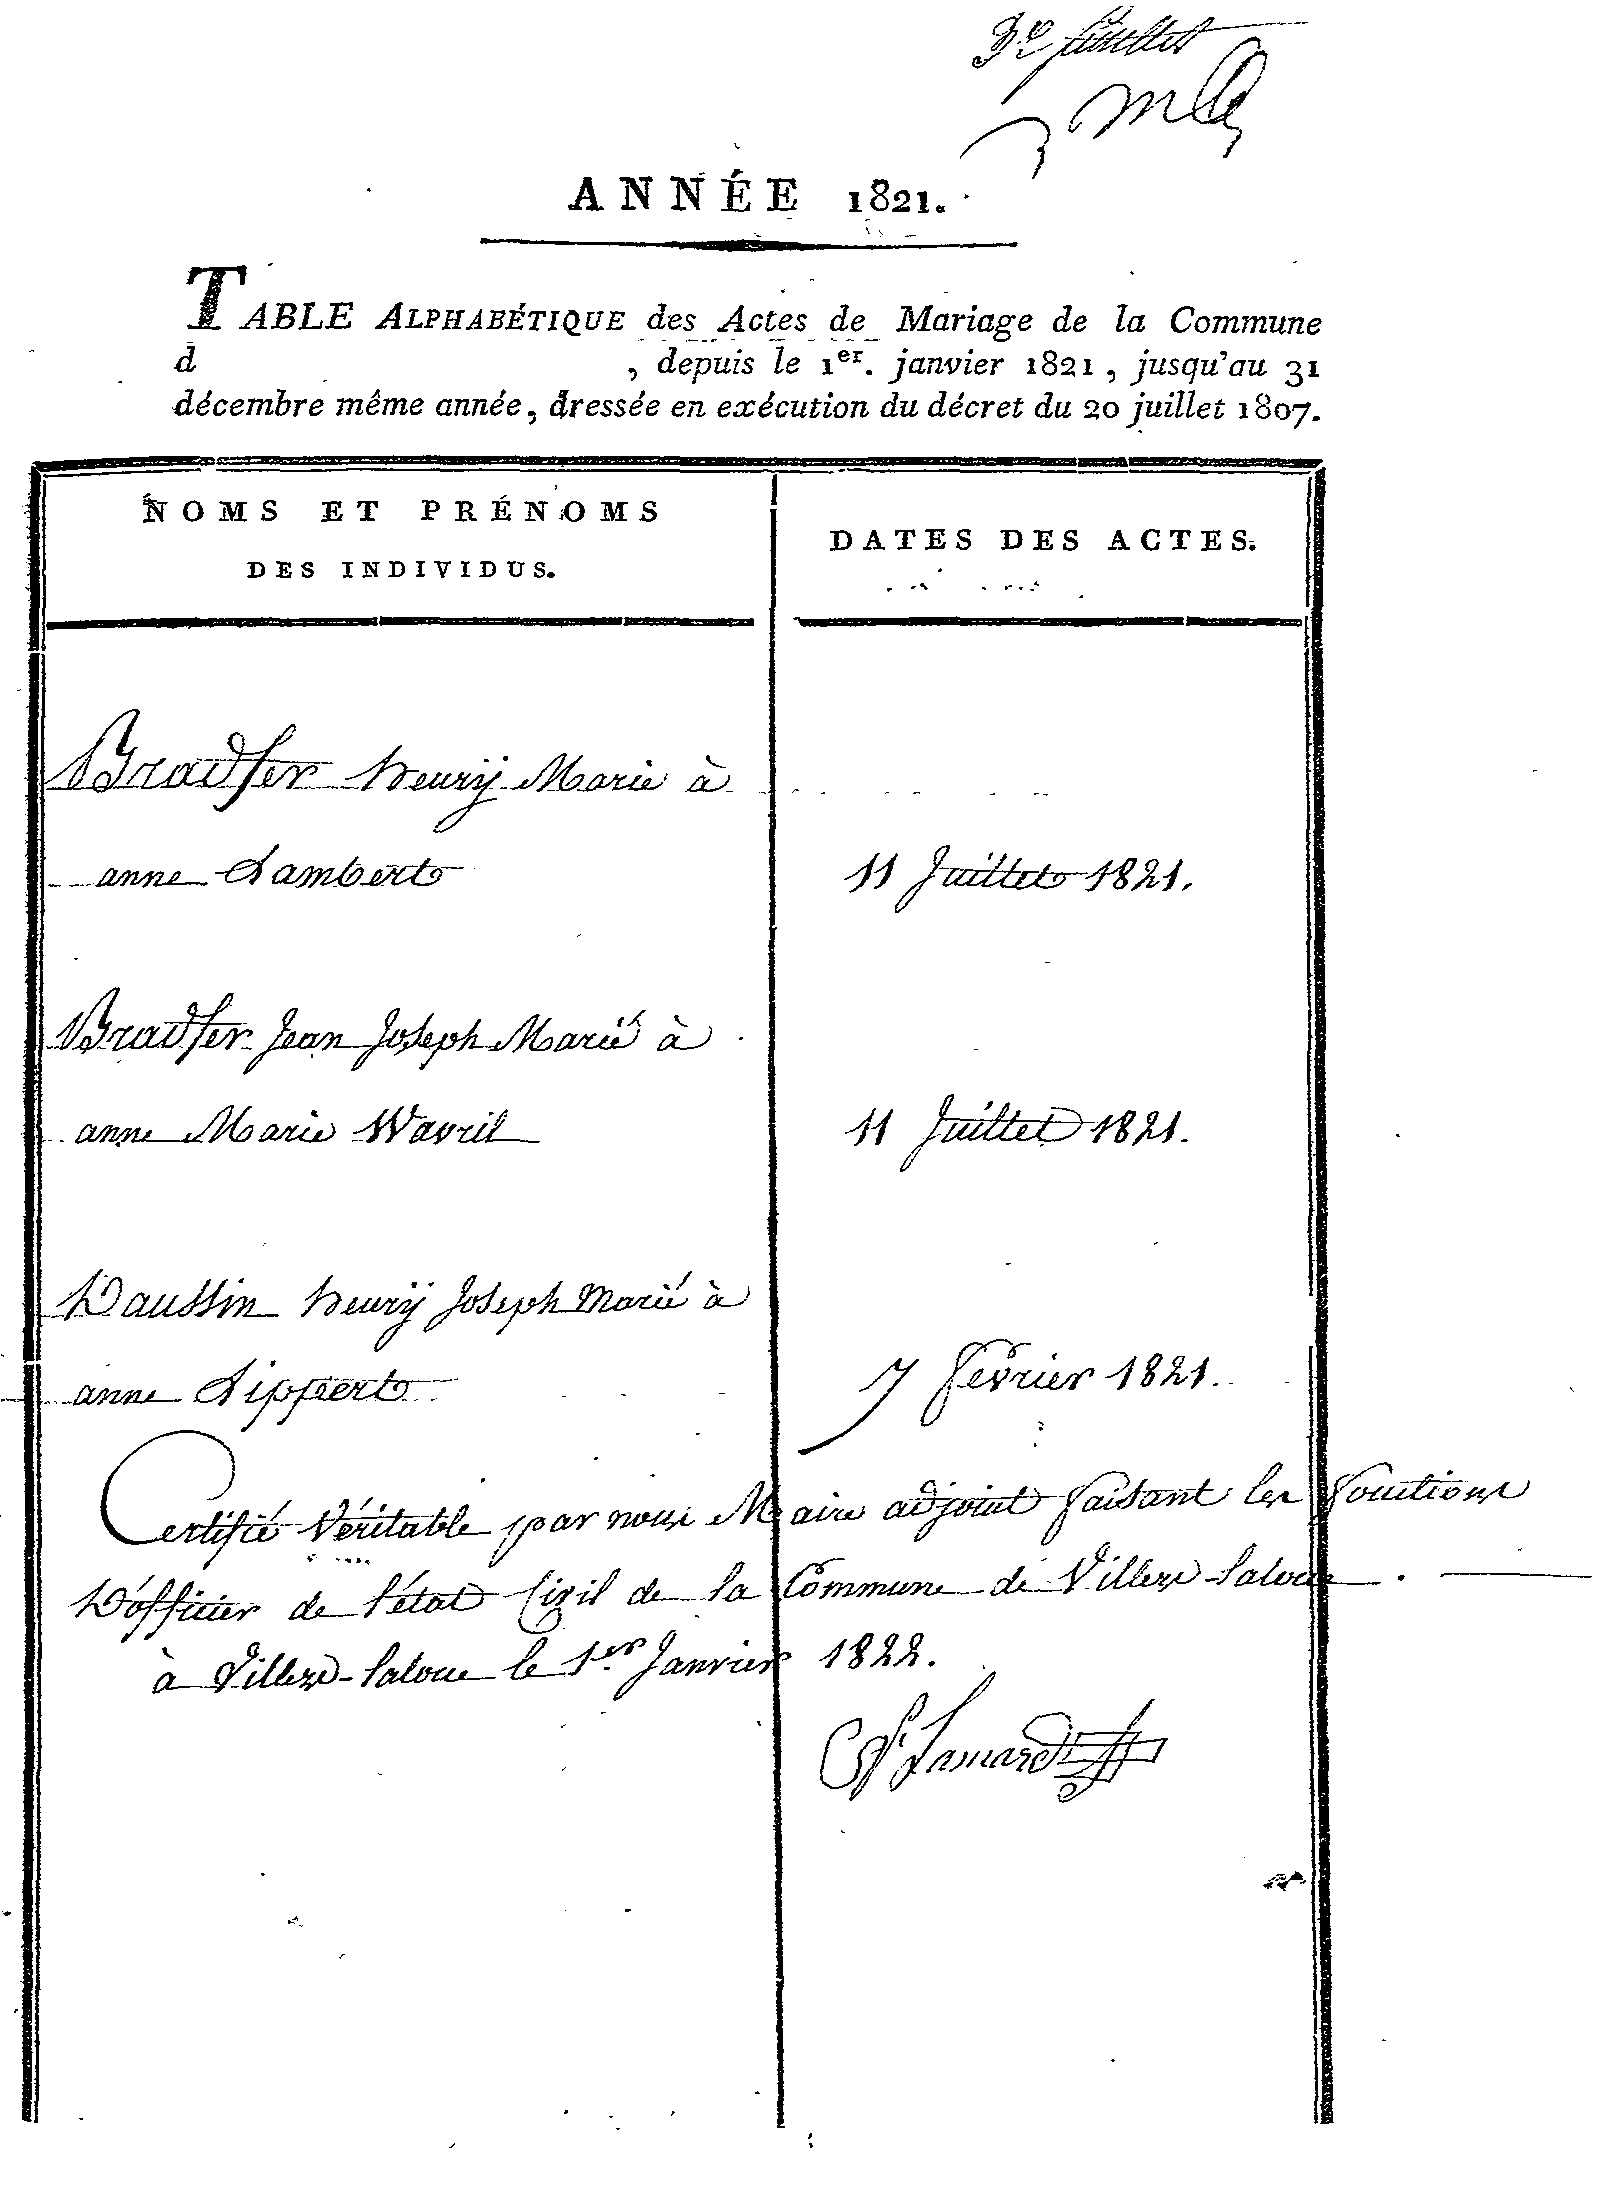 3e feuillet
ANNÉE 1821.
TABLE ALPHABÉTIQUE des Actes de Mariage de la Commune
d , depuis le 1er. janvier 1821, jusqu'au 31
décembre même année, dressée en exécution du décret du 20 juillet 1807.
NOMS ET PRÉNOMS
DES INDIVIDUS.
DATES DES ACTES.
Bradfer henrÿ Marié à
anne Lambert
11 Juillet 1821.
Bradfer Jean Joseph Marié à
anne Marie Wavril
11 Juillet 1821.
Daussin henrÿ Joseph Marié à
anne Lippert
7 février 1821.
Certifié Véritable par nous Maire adjoint faisant les fonctions
D'officier de l'état Civil de la Commune de Villers-laloue
à Villers-laloue le 1er Janvier 1822.